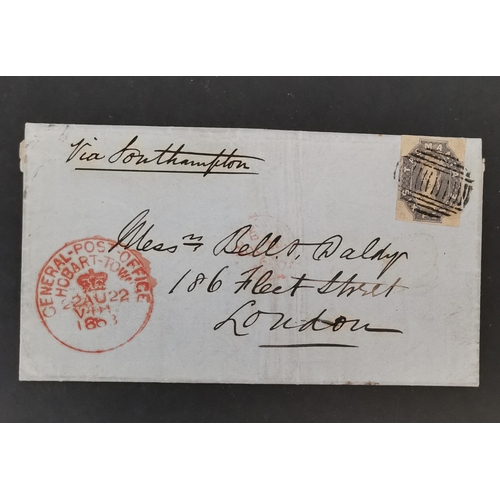 Via Southampton
Mess.rs Bell & Daldy
186 Fleet Street
London
GENERAL-POST-OFFICE
HOBART-TOWN
AU 22
1863